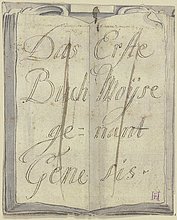 Das Erste
Buch Moÿse
ge=nant
Gene sis.